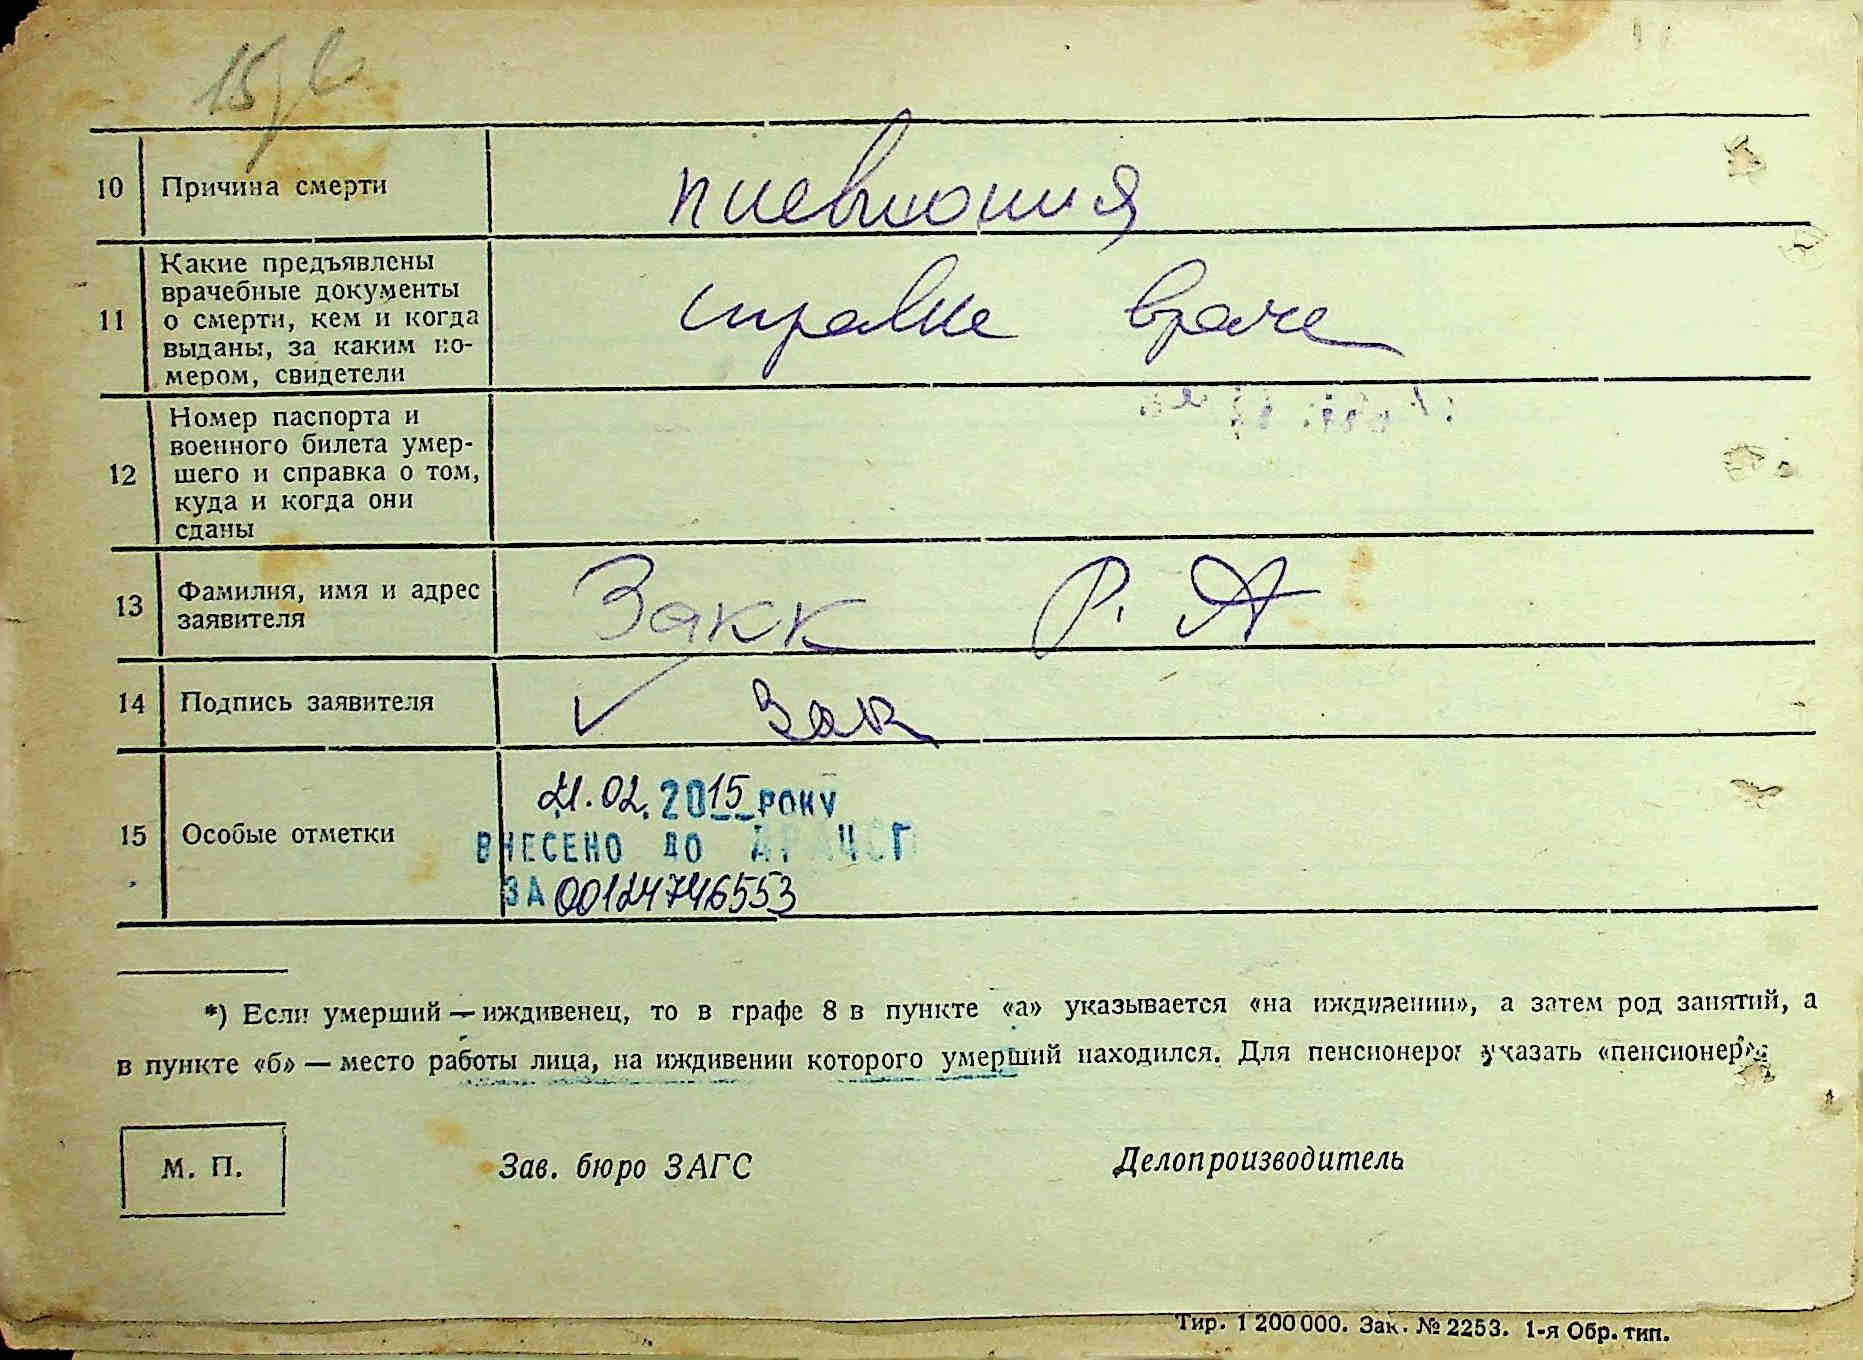 15/
10 Причина смерти пневмония
11 Какие предъявлены
врачебные документы
о смерти, кем и когда
выданы, за каким но-
мером, свидетели
справка врача
12 Номер паспорта и
военного билета умер-
шего и справка о том,
куда и когда они
сданы
13 Фамилия, имя и адрес
заявителя
Закк Р. А
14 Подпись заявителя Зак
21.02.2015 РОКУ
15 Особые отметки
ВНЕСЕНО ДО ДРАЦСГ
ЗА 00124746553
*) Если умерший — иждивенец, то в графе 8 в пункте «а» указывается «на иждивении», а затем род занятий, а
в пункте «б» — место работы лица, на иждивении которого умерший находился. Для пенсионеров указать «пенсионер»
М. П. Зав. бюро ЗАГС Делопроизводитель
Тир. 1 200 000. Зак. № 2253. 1-я Обр. тип.